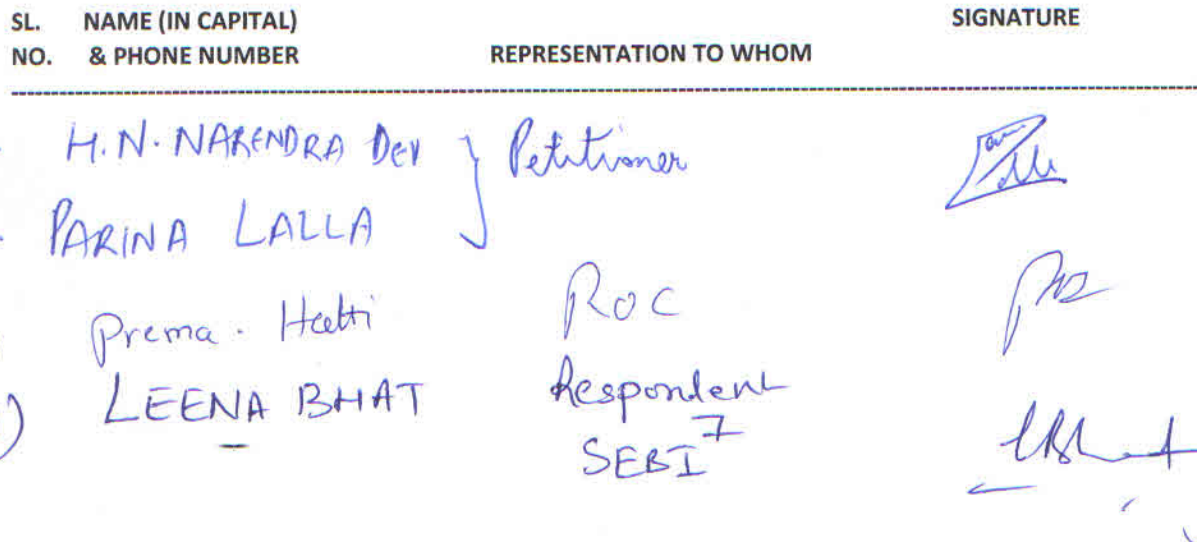 SL. NAME (IN CAPITAL) SIGNATURE
NO. & PHONE NUMBER REPRESENTATION TO WHOM
H.N. NARENDRA DEV } Petitioner
PARINA LALLA
Prema. Hatti ROC
LEENA BHAT Respondent 7
SEBI